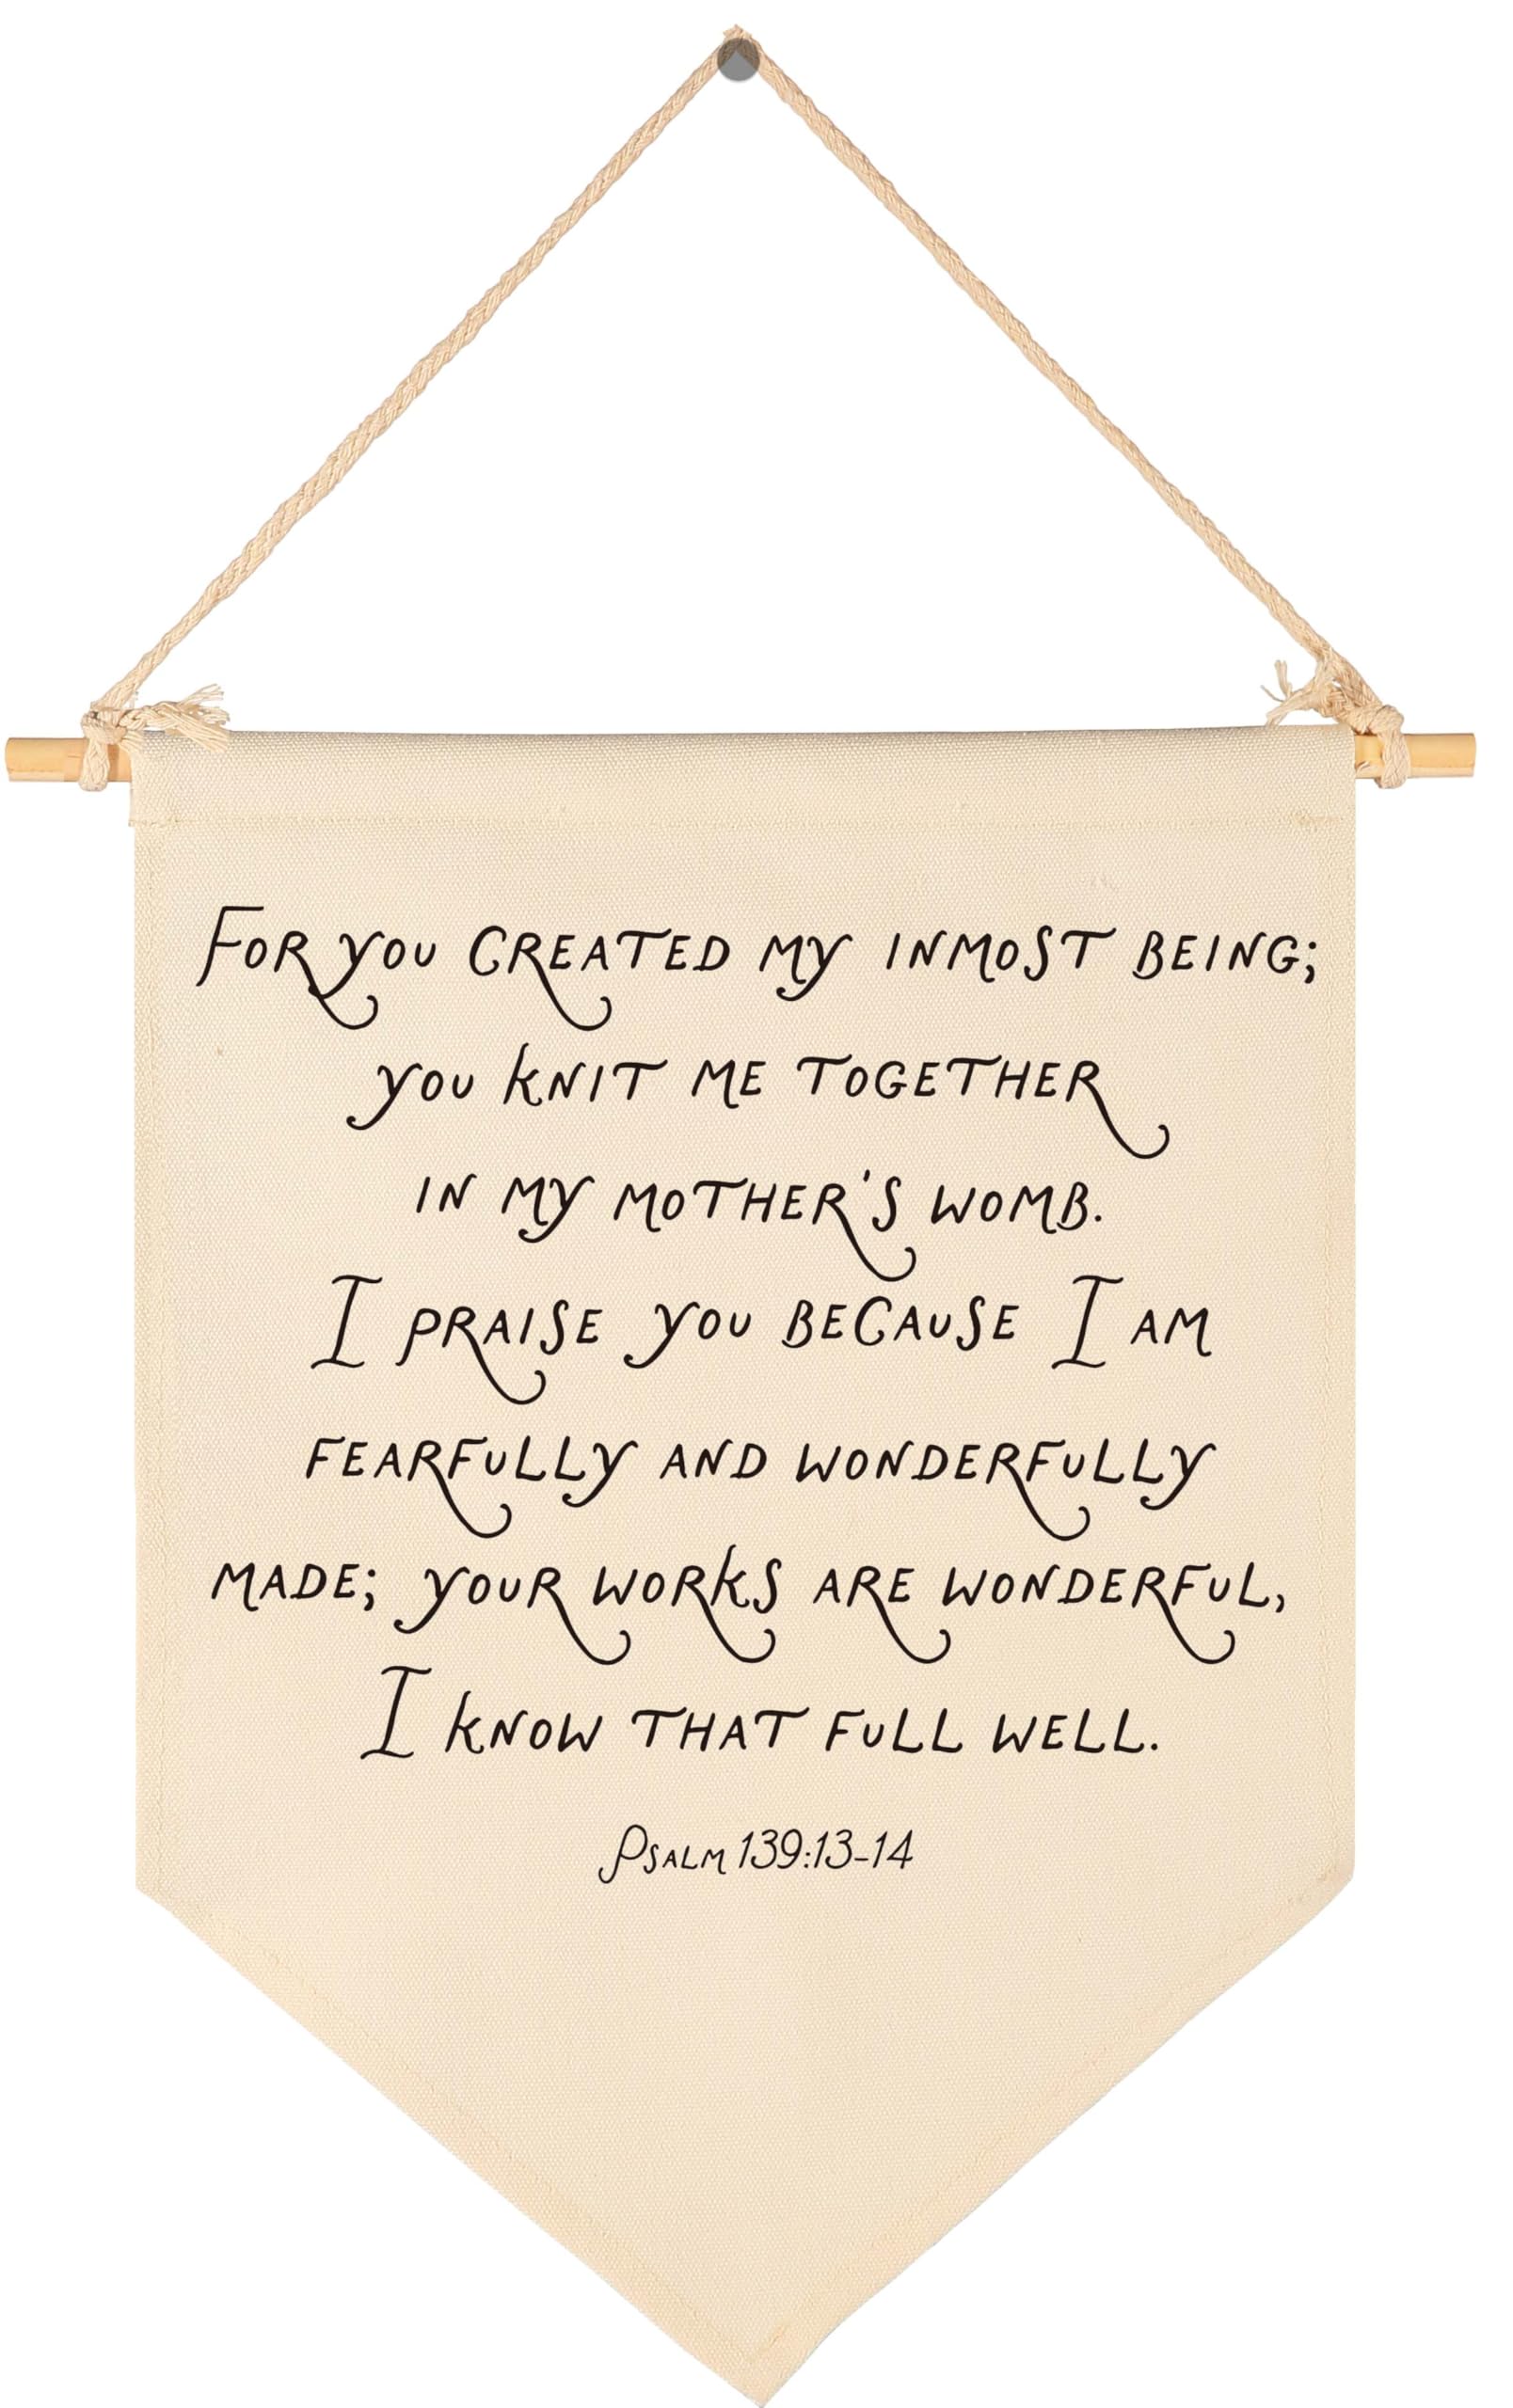 For you created my inmost being;
you knit me together
in my mother's womb.
I praise you because I am
fearfully and wonderfully
made; your works are wonderful,
I know that full well.
Psalm 139:13-14